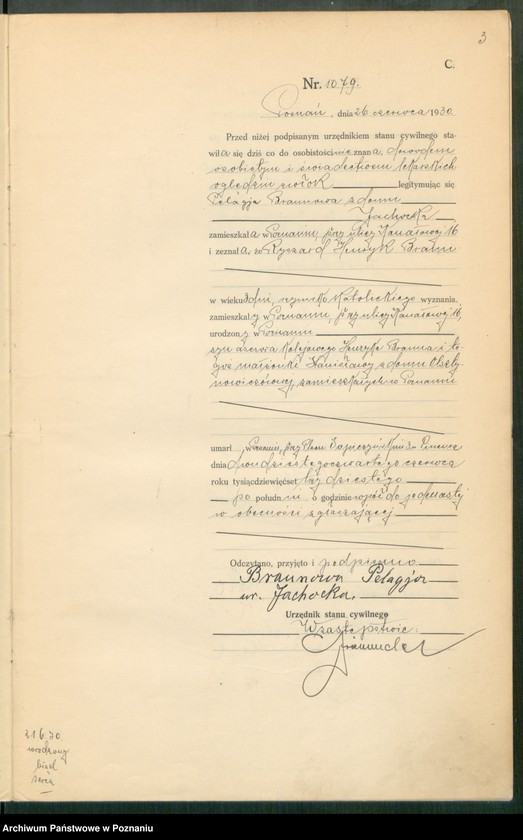 3
C.
Nr. 1079.
Poznań, dnia 26 czerwca 1930
Przed niżej podpisanym urzędnikiem stanu cywilnego sta-
wiła się dziś co do osobistości nieznana, dowodem
osobistym i świadectwem lekarskich
oględzin zwłok legitymując się
Pelagja Braunowa z domu
Jachocka
zamieszkała w Poznaniu, przy ulicy Kanałowej 16
i zeznała, że Ryszard Henryk Braun
w wieku 3 dni, rzymsko katolickiego wyznania,
zamieszkały w Poznaniu, przy ulicy Kanałowej 16,
urodzony w Poznaniu
syn kolejowego Henryka Brauna i te-
goż małżonki Stanisławy z domu
zamieszkałych w Poznaniu
umarł w Poznaniu, przy Placu Sapieżyńskim
dnia dwudziestego czwartego czerwca
roku tysiącdziewięćset trzydziestego
po południu o godzinie wpół do jedenastej
w obecności zgłaszającej
Odczytano, przyjęto i podpisano
Braunowa Pelagja
ur. Jachocka.
Urzędnik stanu cywilnego
W zastępstwie:
21.6.30
urodzony
Archiwum Państwowe w Poznaniu